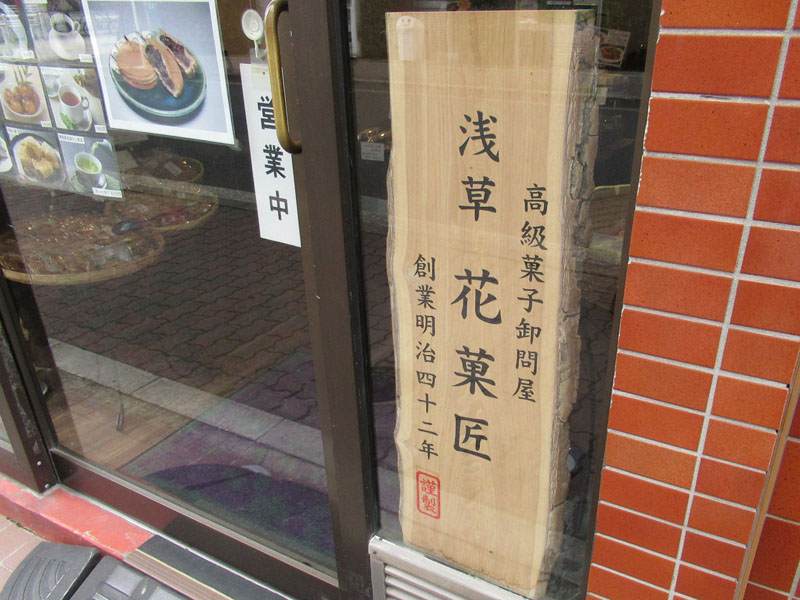 営業中
高級菓子卸問屋
浅草 花菓匠
創業明治四十二年
謹製